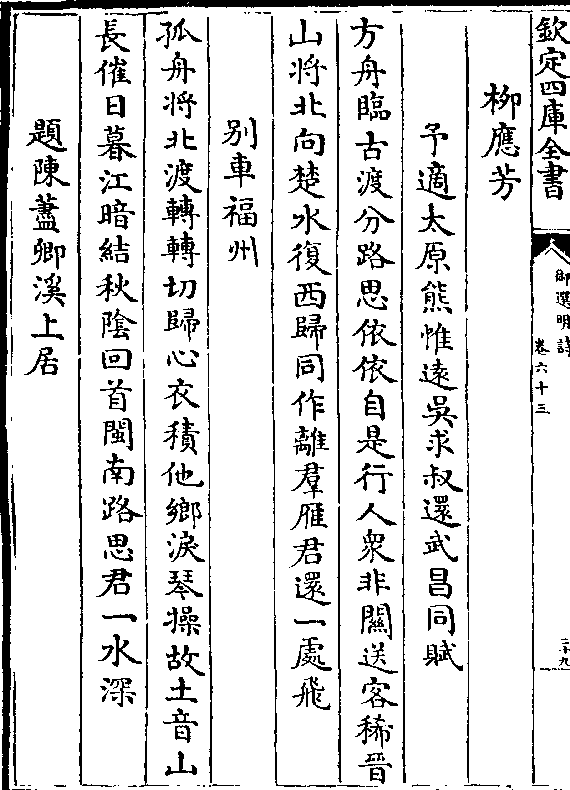 欽定四庫全書
御選明詩
卷六十三
二十九
柳應芳
予適太原熊惟遠吳求叔還武昌同賦
方舟臨古渡分路思依依自是行人衆非關送客稀晉
山將北向楚水復西歸同作離羣雁君還一處飛
别車福州
孤舟將北渡轉轉切歸心衣積他鄉淚琴操故土音山
長催日暮江暗結秋陰回首閩南路思君一水深
題陳藎卿溪上居